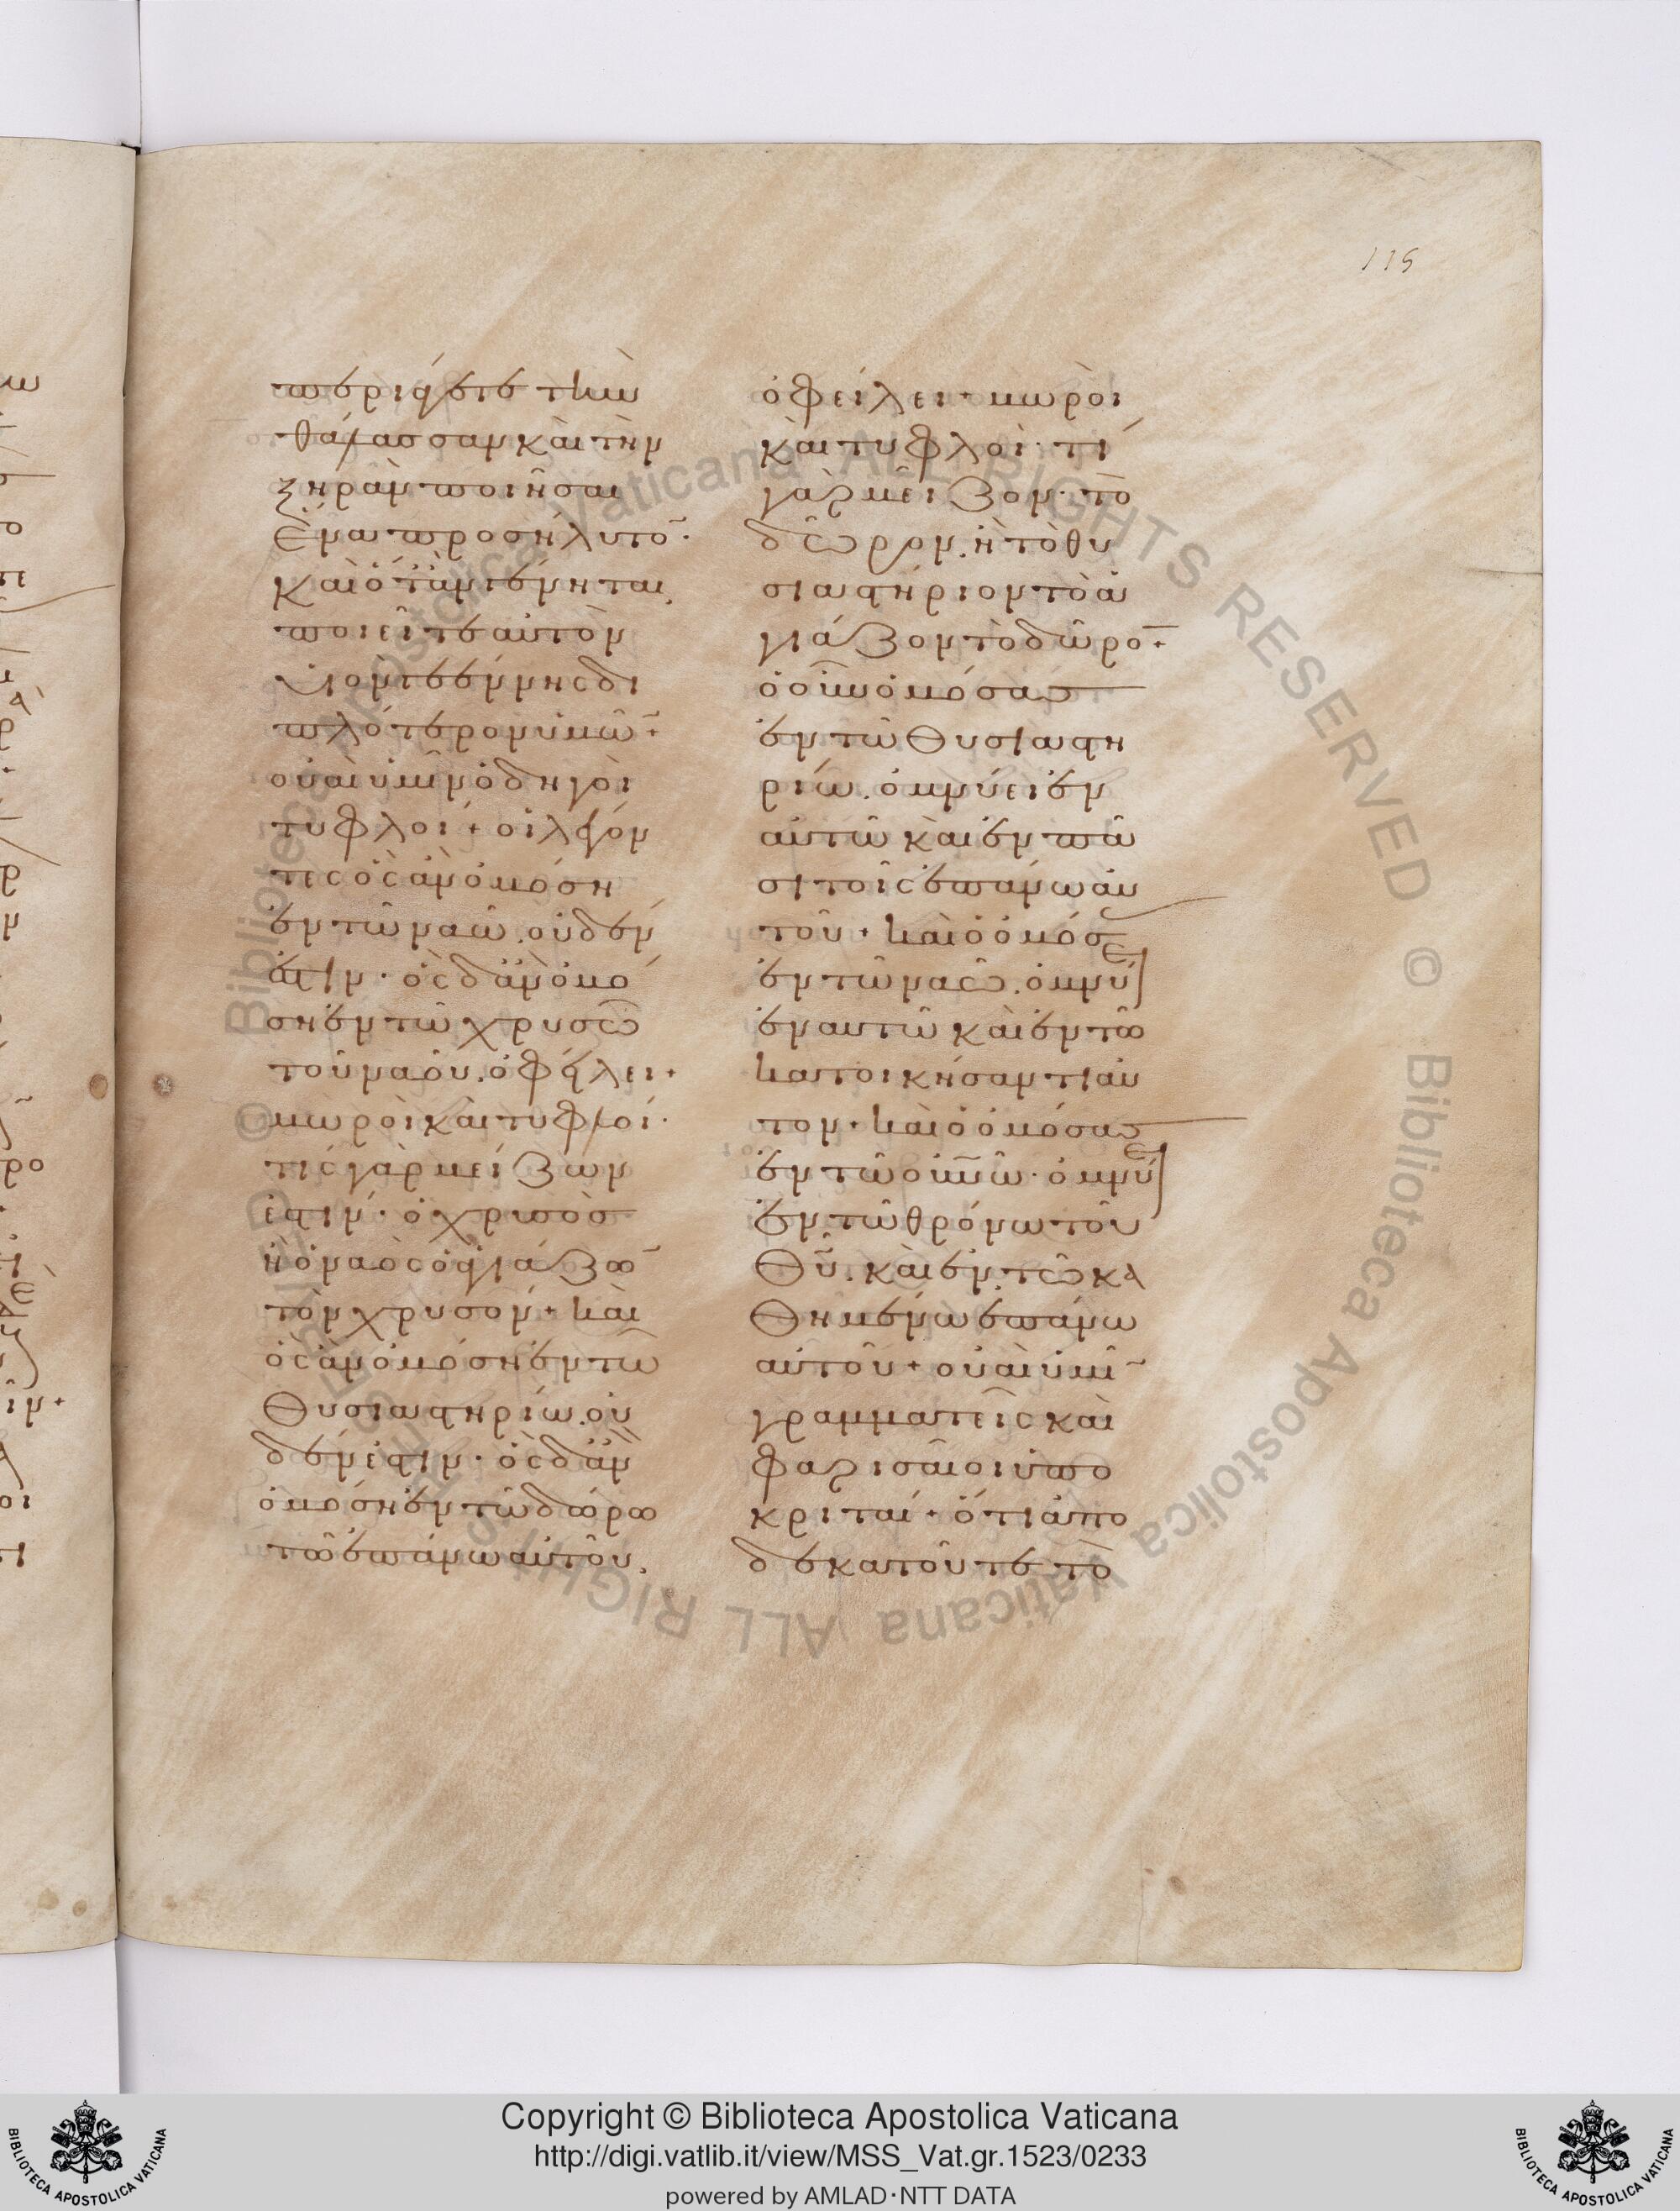 115
περιάγετε τὴν
θάλασσαν καὶ τὴν
ξηρὰν ποιῆσαι
ἕνα προσήλυτο̄·
καὶ ὅταν γένηται,
ποιεῖτε αὐτὸν
υἱὸν γεέννης δι
πλότερον ὑμῶ̄+
οὐαὶ ὑμῖν ὁδηγοὶ
τυφλοί+ οἱ λέγον
τες ὃς ἂν ὀμόση
ἐν τῶ ναῶ, οὐδέν
ἐστιν· ὃς δ' ἂν ὀμό
ση ἐν τῶ χρυσῶ
τοῦ ναοῦ, ὀφείλει+
μωροὶ καὶ τυφλοί·
τίς γὰρ μείζων
ἐστίν· ὁ χρυσὸς
ἢ ὁ ναὸς ὁ ἁγιάζω̄
τὸν χρυσόν+ καὶ
ὃς ἂν ὀμόση ἐν τῶ
θυσιαστηρίω, οὐ
δέν ἐστιν· ὃς δ' ἂν
ὀμόση ἐν τῶ δώρω
τῶ ἐπάνω αὐτοῦ,
ὀφείλει+ μωροὶ
καὶ τυφλοί· τί
γὰρ μεῖζον· τὸ
δῶρον, ἢ τὸ θυ
σιαστήριον τὸ ἁ
γιάζον τὸ δῶρο̄+
ὁ οὖν ὀμόσας
ἐν τῶ θυσιαστη
ρίω, ὀμνύει ἐν
αὐτῶ καὶ ἐν πᾶ
σι τοῖς ἐπάνω αὐ
τοῦ+ καὶ ὁ ὀμόσας
ἐν τῶ ναῶ, ὀμνύει
ἐν αυτῶ καὶ ἐν τῶ
κατοικήσαντι αὐ
τον+ καὶ ὁ ὀμόσας
ἐν τῶ οὐνῶ· ὀμνύει
ἐν τῶ θρόνω τοῦ
θῦ, καὶ ἐν τῶ κα
θημένω ἐπάνω
αὐτοῦ+ οὐαὶ ὑμῖ̄
γραμματεῖς καὶ
φαρισαῖοι ὑπο
κριταί+ ὅτι ἀπο
δεκατοῦτε τὸ
Copyright © Biblioteca Apostolica Vaticana
http://digi.vatlib.it/view/MSS_Vat.gr.1523/0233
powered by AMLAD·NTT DATA
BIBLIOTECA APOSTOLICA VATICANA
BIBLIOTECA APOSTOLICA VATICANA